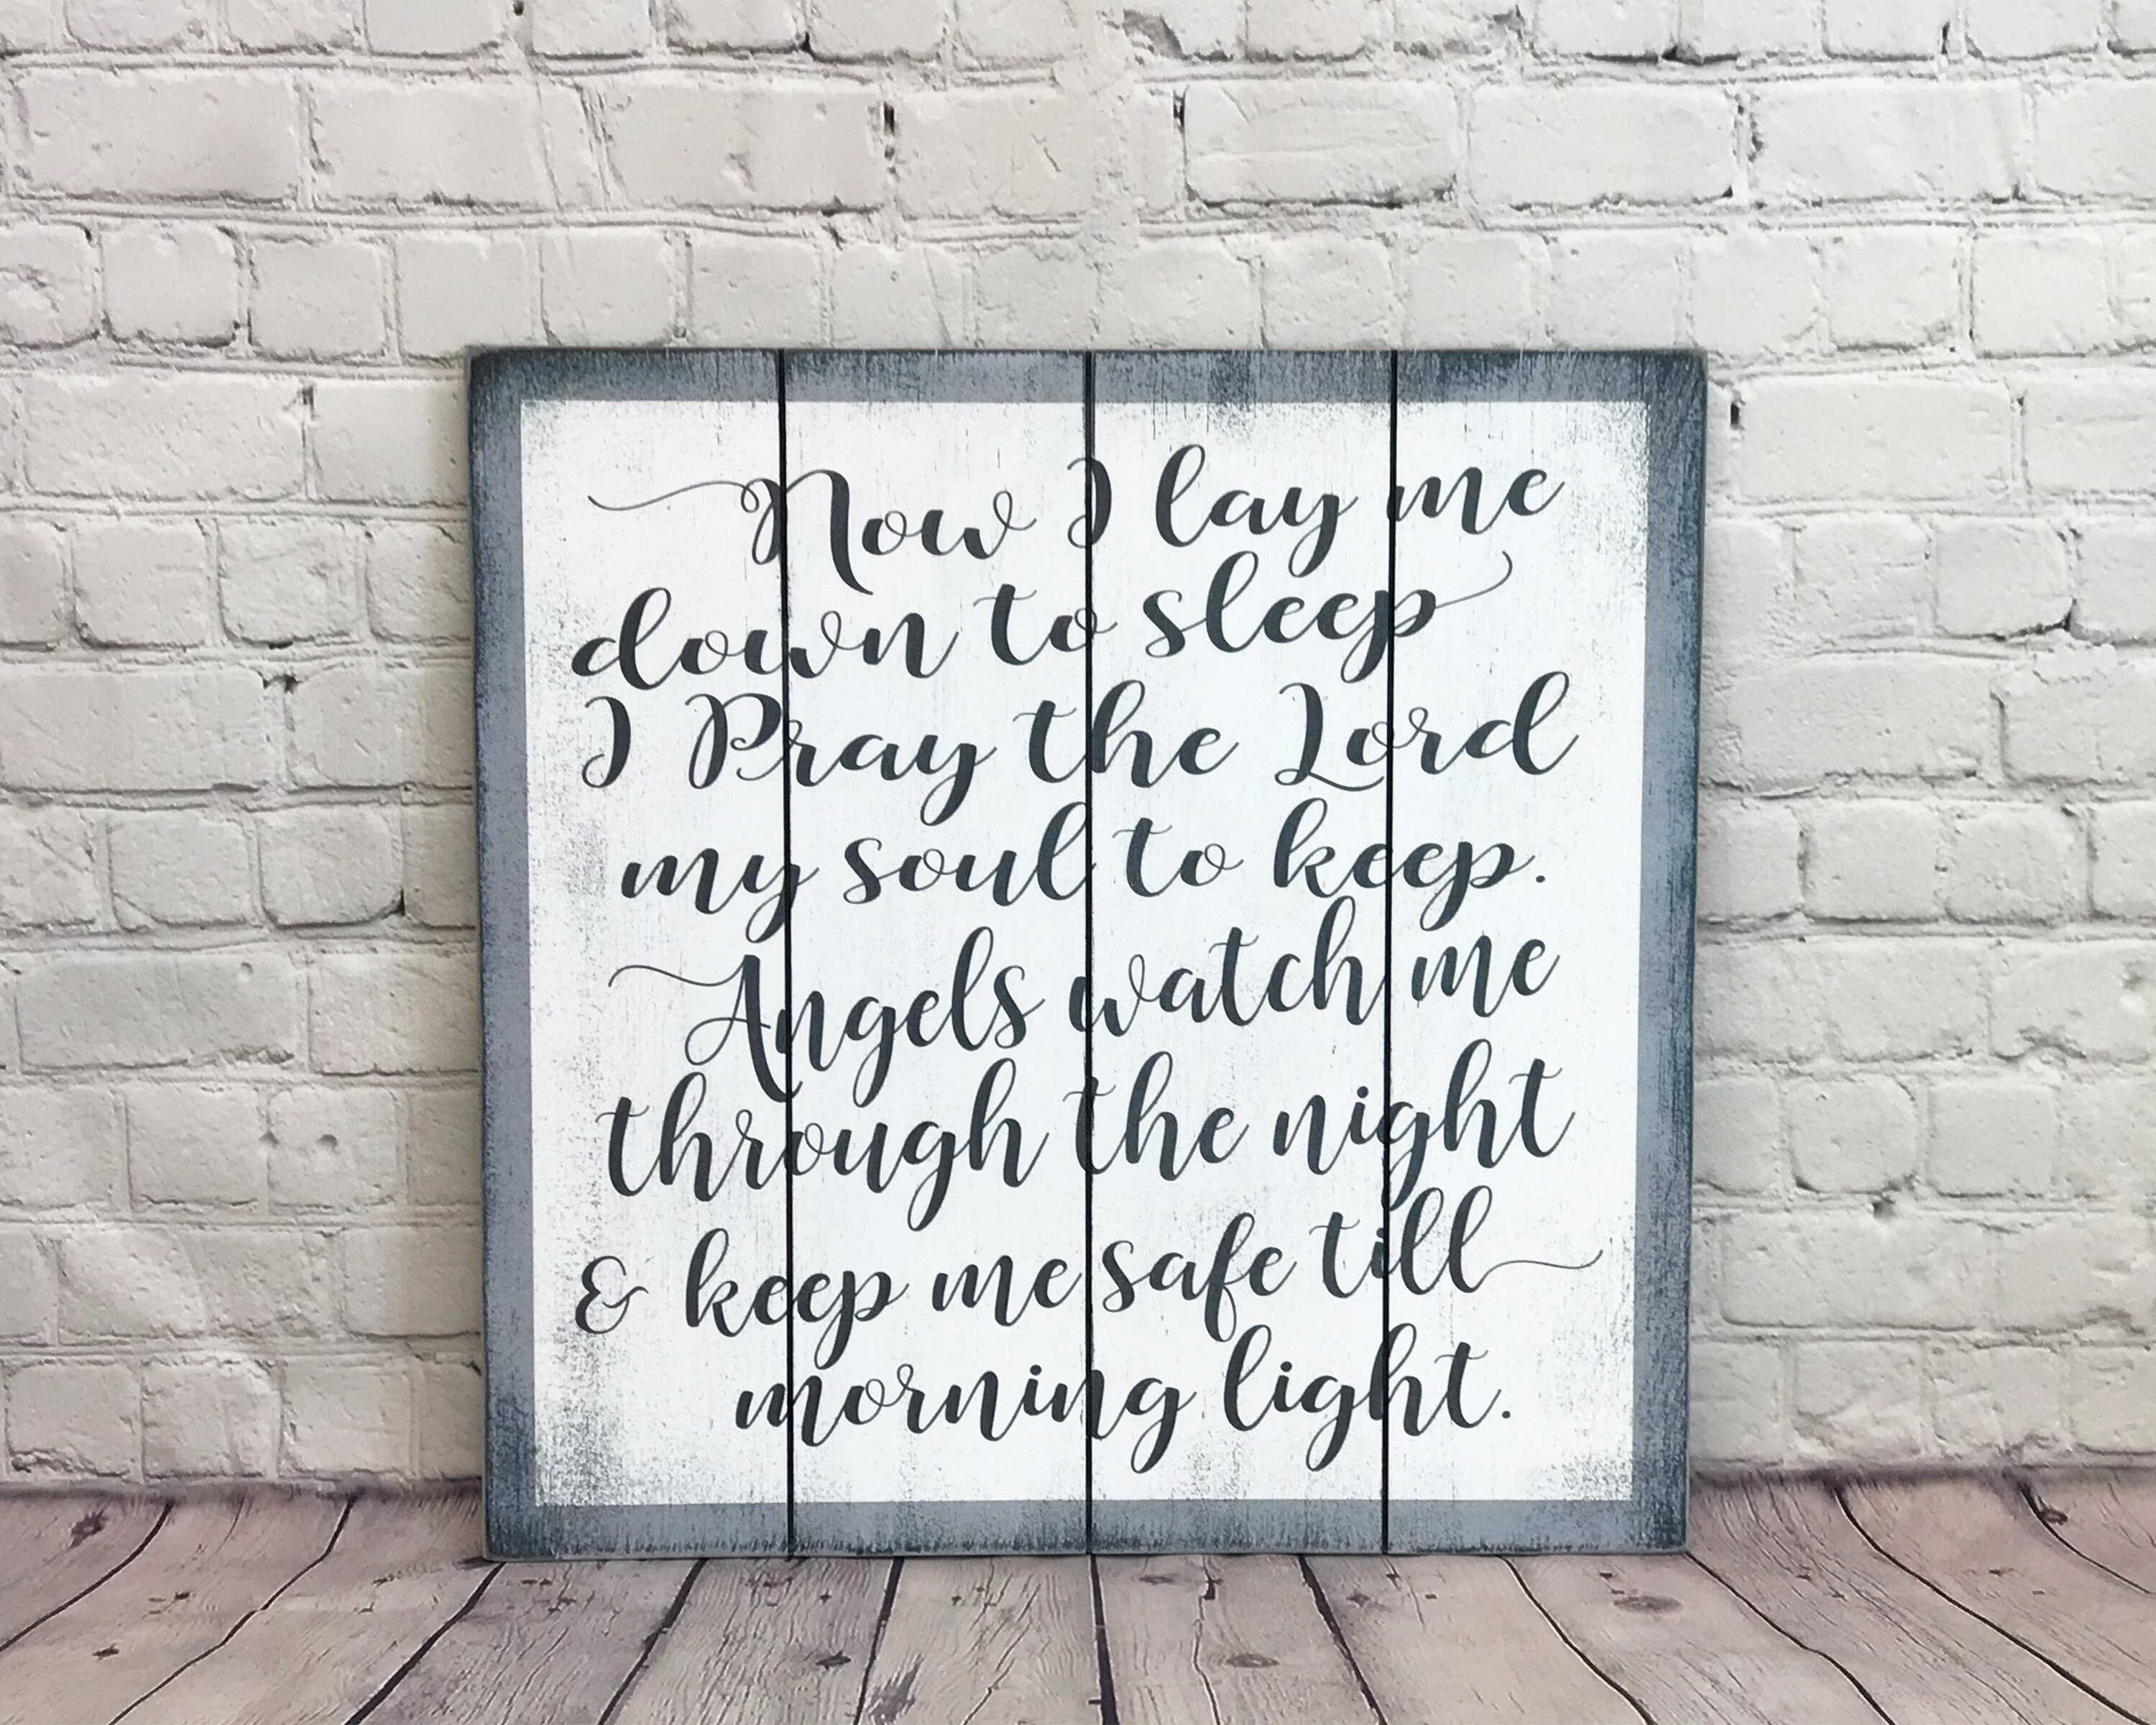 Now I lay me
down to sleep
I Pray the Lord
my soul to keep.
Angels watch me
through the night
& keep me safe till
morning light.